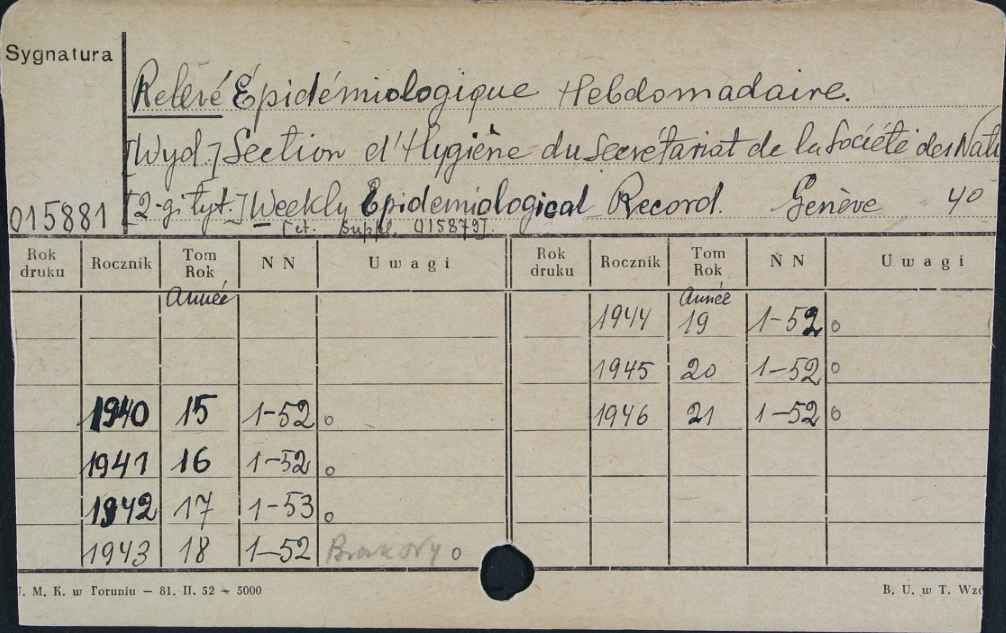 Sygnatura
Relevé Épidémiologique Hebdomadaire.
[Wyd.] Section d'Hygiène du Secrétariat de la Société des Nati
015881 [2-gi tyt.] Weekly Epidemiological Record. Genève 4o
[et. Suppl. 015879].
Rok druku Rocznik Tom Rok N N Uwagi Rok druku Rocznik Tom Rok N N Uwagi
Année Année
1944 19 1-52 o
1945 20 1-52 o
1940 15 1-52 o 1946 21 1-52 o
1941 16 1-52 o
1942 17 1-53 o
1943 18 1-52 o
. M. K. w Toruniu — 81. II. 52 — 5000 B. U. w T. Wzó